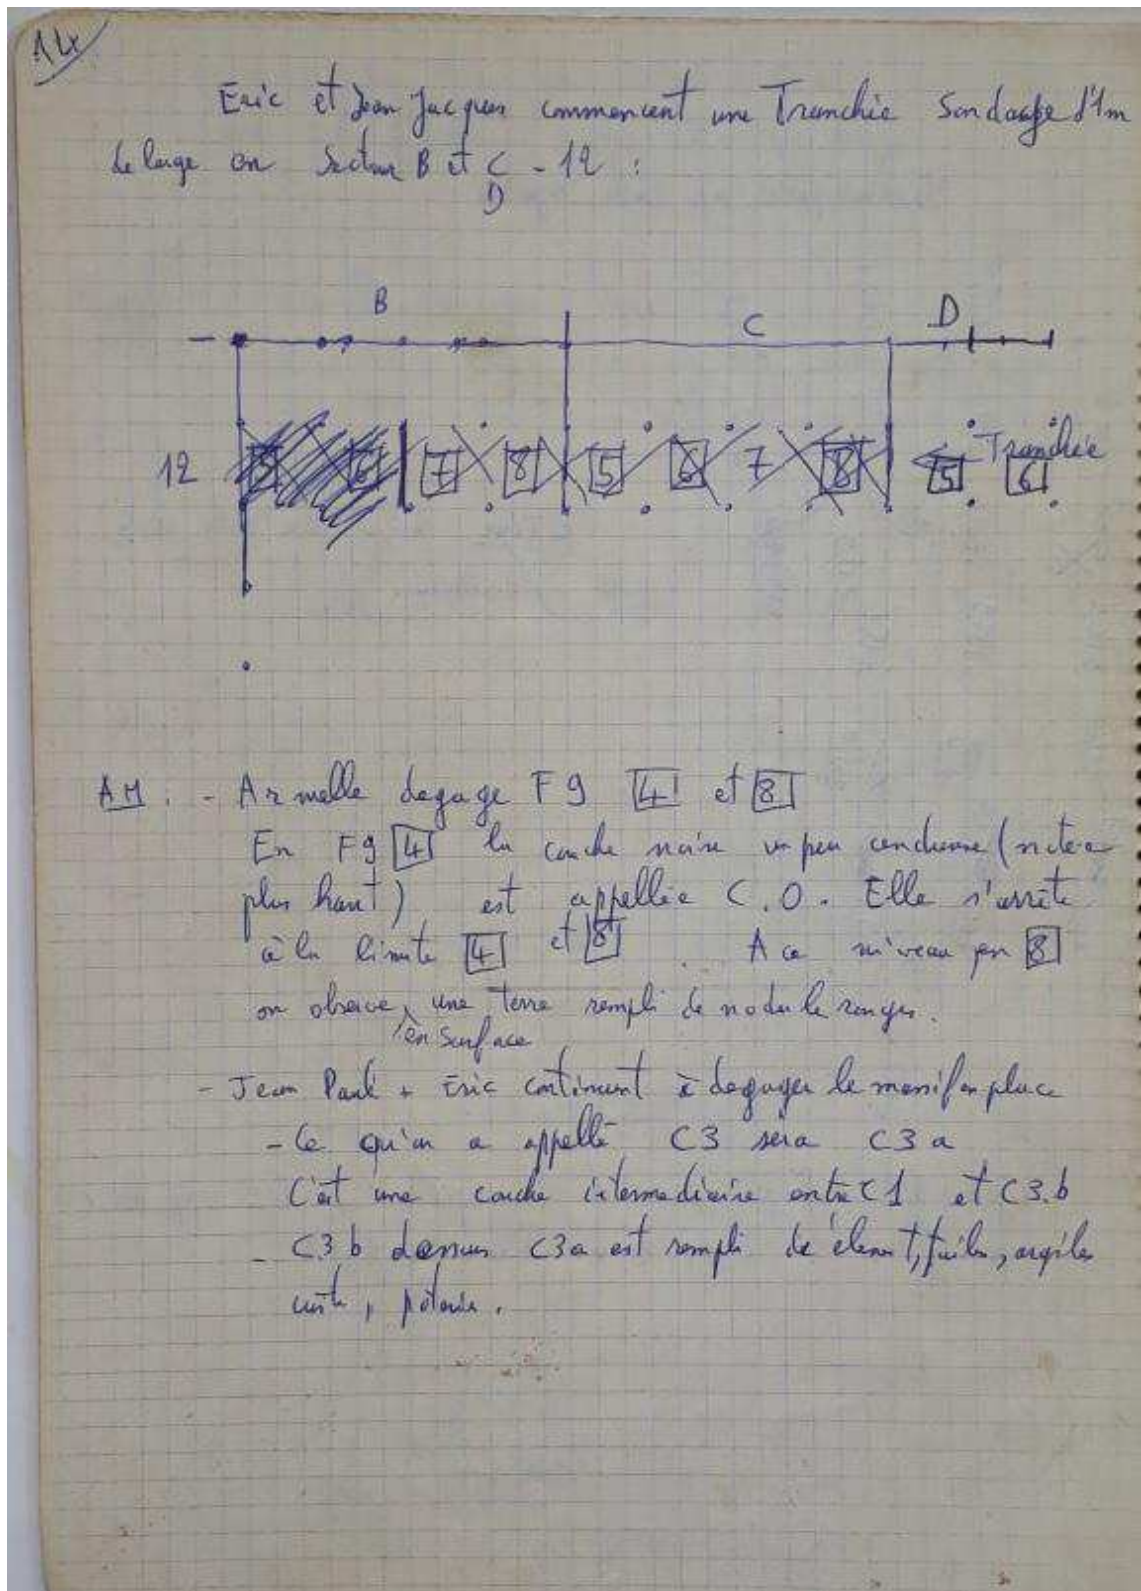 14
Eric et Jean Jacques commencent une Tranchée Sondage d'1m
de large en Secteur B et C - 12 :
D
B C D
12 5 6 7 8 5 6 7 8 5 6 Tranchée
AM : - Armelle degage F9 4 et 8
En F9 4 la couche noire un peu cendreuse (notée
plus haut) est appellée C.O. Elle s'arrête
à la limite 4 et 8 . A ce niveau en 8
on observe en surface une terre rempli de nodule rouges.
- Jean Paul + Eric continuent à degager le massif en place
- Ce qu'on a appellé C3 sera C3a
C'est une couche intermediaire entre C1 et C3.b
- C3b dessus C3a est rempli de élement, tuiles, argiles
cuite, poterie.